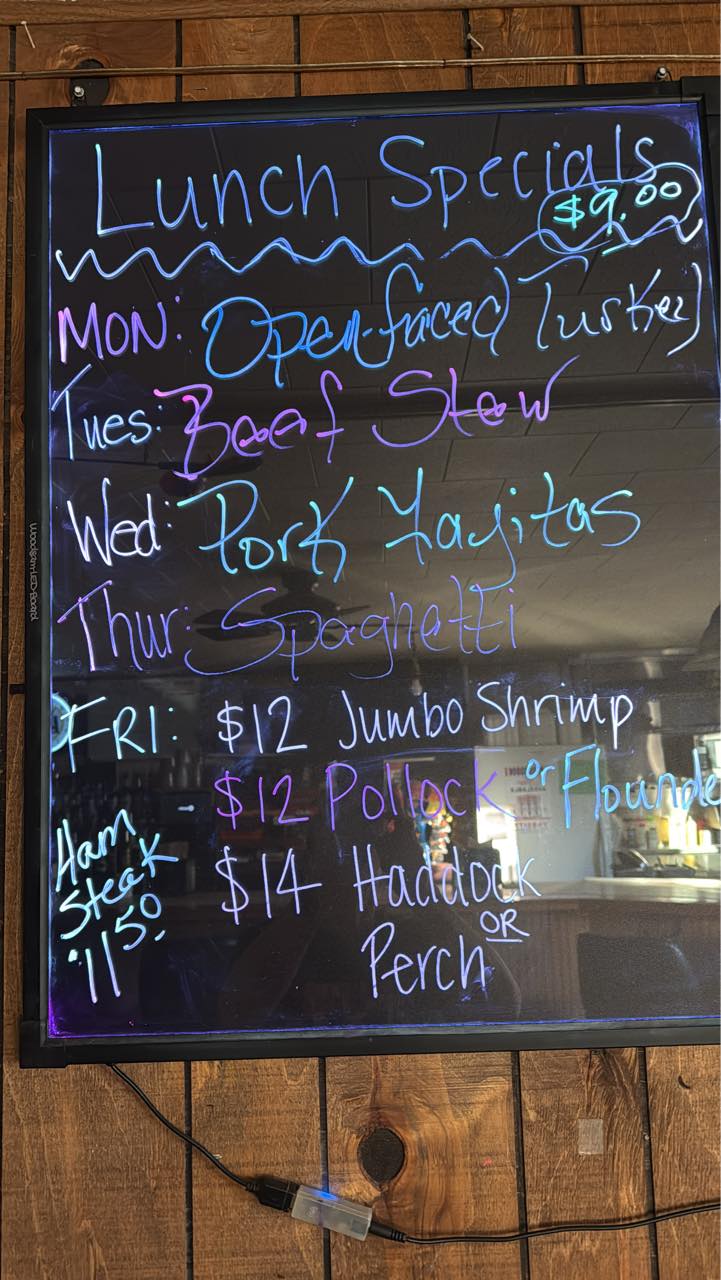 Lunch Specials
$9.00
MON: Open-faced Turkey
Tues: Beef Stew
Wed: Pork Fajitas
Thur: Spaghetti
FRI: $12 Jumbo Shrimp
$12 Pollock or Flounde
$14 Haddock
OR
Perch
Ham
Steak
$11.50
Woodsam-LED-Board